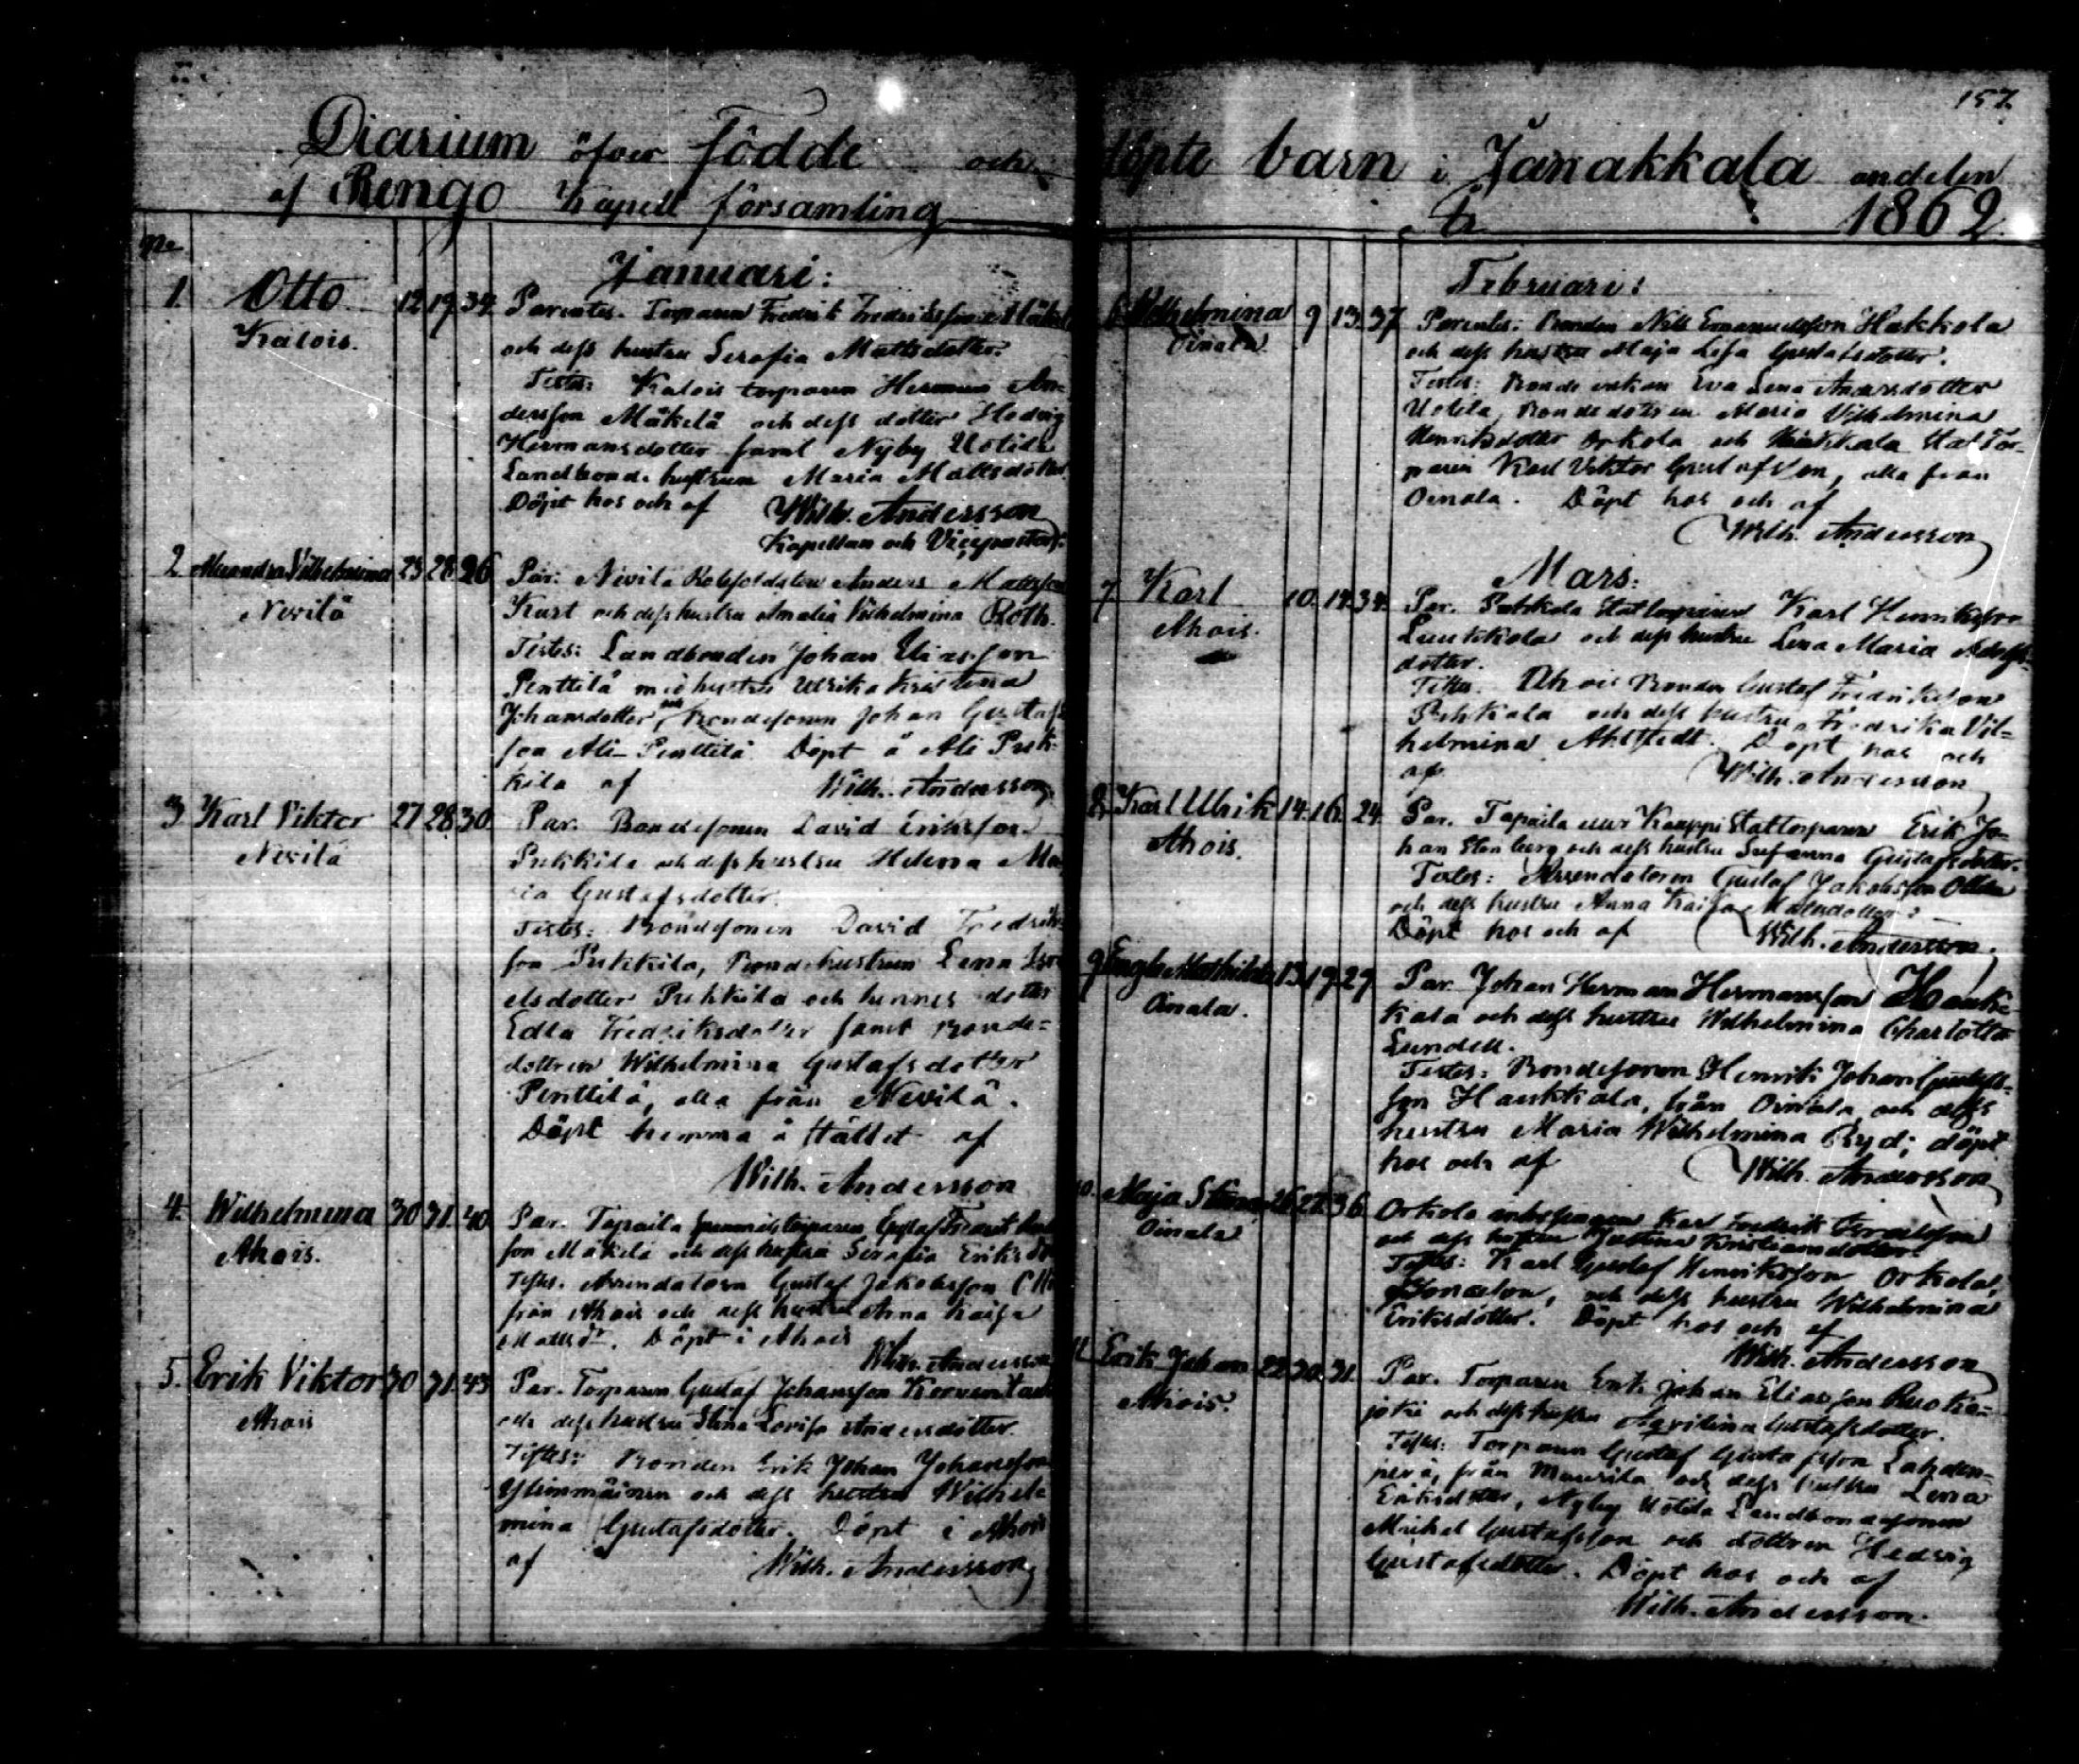 157.
Diarium öfver födde och döpte barn i Janakkala andelen
af Rengo Kapell församling År 1862
No
Januari:
1. Otto 12 19 34. Parentes. Torparen Fredrik Fredriksson
Kalois. och dess hustru Serafia Mattsdotter.
Testes: Kalois torparen Herman An-
dersson Mäkelä och dess dotter Hedvig
Hermansdotter samt Nyby Uotila
Landbonde hustrun Maria Mattsdotter.
Döpt hos och af Wilh. Andersson
Kapellan och Vicepastor.
2 Alexandra Vilhelmina 25 28 26 Par: Nevilä Anders Mattsson
Nevilä Kurt och dess hustru Amalia Vilhelmina Roth.
Testes: Landbonden Johan Eliasson
Penttilä med hustru Ulrika Kristina
Johansdotter, och Bondesonen Johan Gustafs-
son Ali-Penttilä Döpt å Ali Puk-
kila af Wilh. Andersson
3 Karl Viktor 27 28 30. Par. Bondesonen David Eriksson
Nevilä Pukkila och dess hustru Helena Ma-
ria Gustafsdotter.
Testes: Bondesonen David Fredriks-
son Pukkila, Bondehustrun Lena Isra-
elsdotter Pukkila och hennes dotter
Edla Fredriksdotter samt Bonde-
dottren Wilhelmina Gustafsdotter
Penttilä, alla från Nevilä.
Döpt hemma å stället af
Wilh. Andersson
4. Wilhelmina 30 31. 40 Par. Tapaila Gustaf
Ahois. son Mäkelä och dess hustru Serafia Eriksdr
Testes. Arrendatorn Gustaf Jakobsson
från Ahois och dess hustru Anna Kaisa
Mattsdr. Döpt i Ahois
Wilh. Andersson
5. Erik Viktor 30 31. 43 Par. Torparen Gustaf Johansson
Ahois och dess hustru Stina Lovisa Andersdotter.
Testes: Bonden Erik Johan Johansson
Ylimmäinen och dess hustru Wilhel-
mina Gustafsdotter. Döpt i Ahois
af Wilh. Andersson
Februari:
6 Wilhelmina 9 13. 37 Parentes: Bonden Nils Emanuelsson Hakkola
Oinala. och dess hustru Maja Lisa Gustafsdotter.
Testes: Bonde enkan Eva Lena Andersdotter
Uotila, Bondedottren Maria Vilhelmina
Henriksdotter Orkola och Tor-
paren Karl Viktor Gustafsson, alla från
Oinala. Döpt hos och af
Wilh. Andersson
Mars:
7 Karl 10. 14. 34. Par. Karl Henriksson
Ahois. och dess hustru Lena Maria Adolfs-
dotter.
Testes. Ahois Bonden Gustaf Fredriksson
och dess hustru Fredrika Vil-
helmina Ahlstedt. Döpt hos och
af Wilh. Andersson
8. Karl Ulrik 14. 16. 24. Par. Tapaila Kauppi Stattorparen Erik Jo-
Ahois. han Stenberg och dess hustru Susanna Gustafsdotter.
Testes: Arrendatorn Gustaf Jakobsson
och dess hustru Anna Kaisa Mattsdotter:
Döpt hos och af Wilh. Andersson.
9 Mathilda 13. 19. 29. Par. Johan Herman Hermansson Hauk-
Oinala. kala och dess hustru Wilhelmina Charlotta
Lundell.
Testes: Bondesonen Henrik Johan Gustafs-
son Haukkala, från Oinala och dess
hustru Maria Wilhelmina Ryd; döpt
hos och af Wilh. Andersson
10. Maja Stina 26 27. 36. Orkola Karl Fredrik
Oinala och dess hustru Justina Kristiansdotter.
Testes: Karl Gustaf Henriksson Orkola,
och dess hustru Wilhelmina
Eriksdotter. Döpt hos och af
Wilh. Andersson
11 Erik Johan 29 30. 31. Par. Torparen Erik Johan Eliasson Ruoka-
Ahois. joki och dess hustru Gustafsdotter.
Testes: Torparen Gustaf Gustafsson Lahden-
perä, från och dess hustru Lena
Eriksdotter, Nyby Uotila Landbondesonen
Mickel Gustafsson och dottren Hedvig
Gustafsdotter. Döpt hos och af
Wilh. Andersson.